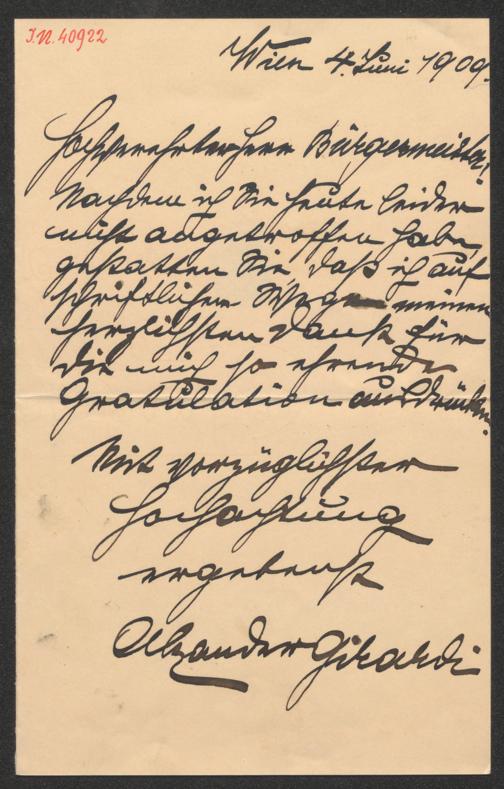 I.N. 40922
Wien 4. Juni 1909.
Hochverehrter Herr Bürgermeister!
Nachdem ich Sie heute leider
nicht angetroffen habe,
gestatten Sie, daß ich auf
schriftlichem Wege meinen
herzlichsten Dank für
die mich so ehrende
Gratulation ausdrücke.
Mit vorzüglichster
Hochachtung
ergebenst
Alexander Girardi